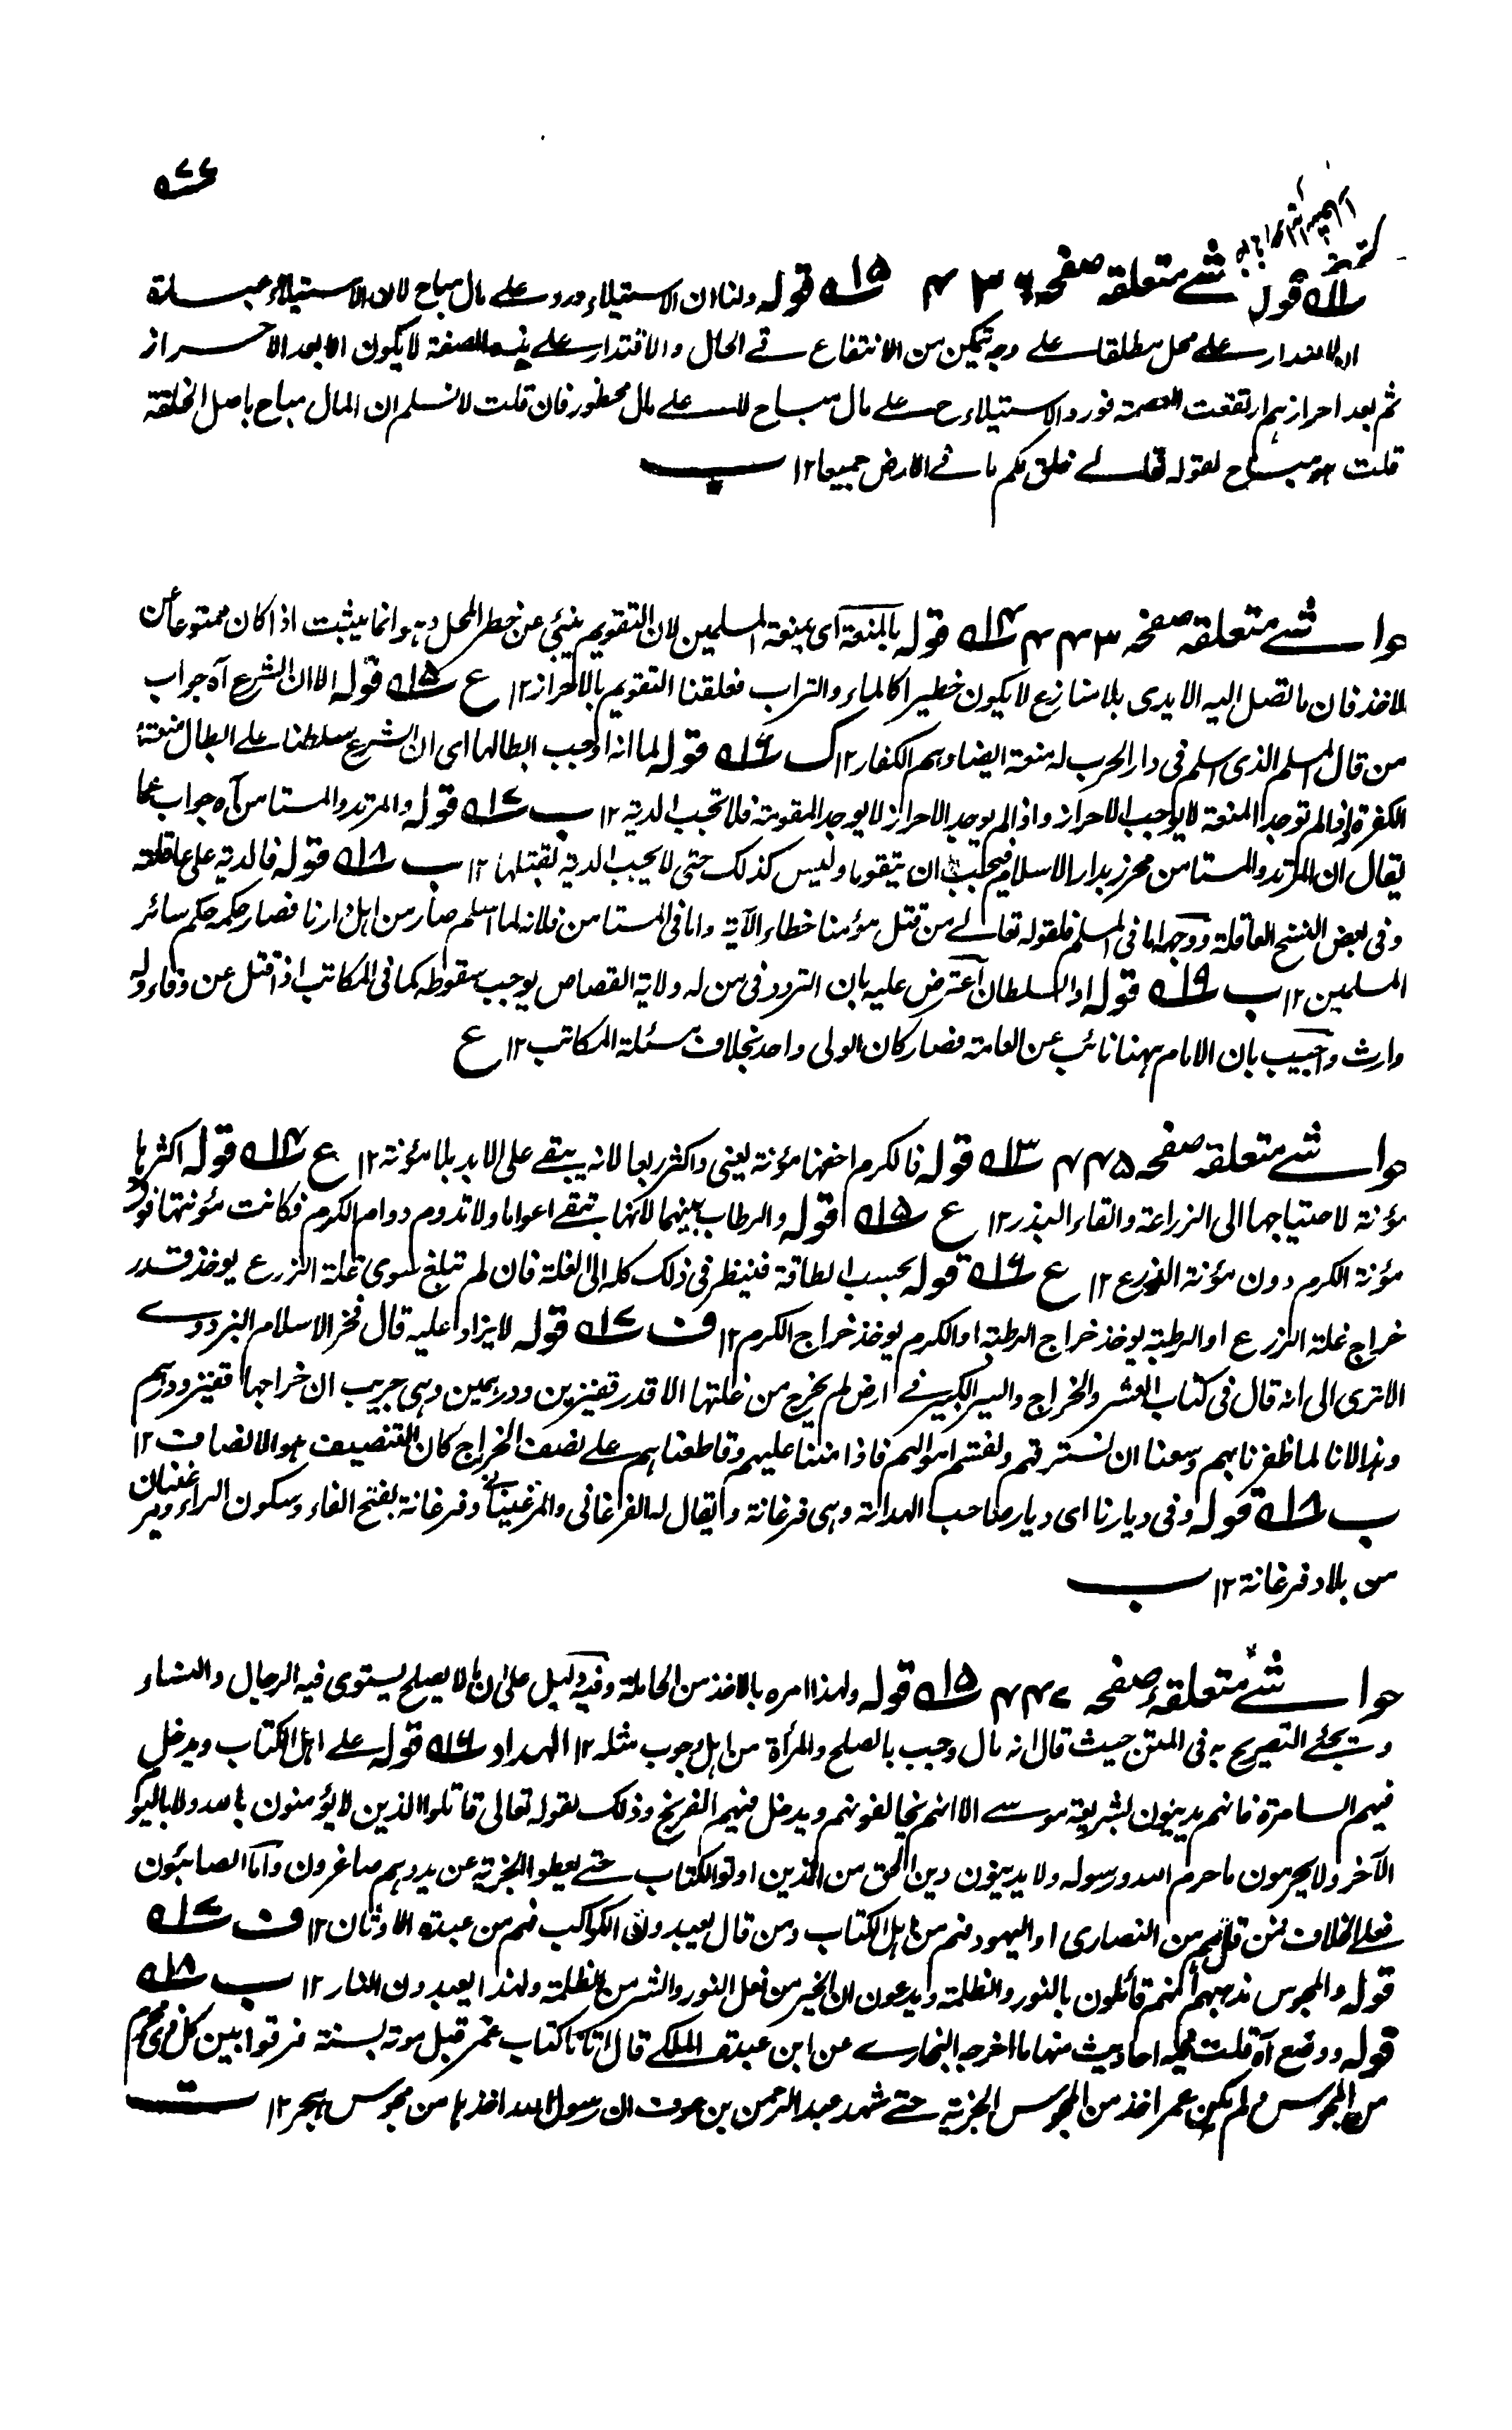 شے متعلقہ صفحہ ۴۳۶ ۱۵ قولہ ولنا ان الاستیلاء ورد علے مال مباح لان الاستیلاء عبارة
علے محل مطلقا علے وجہ یتمکن من الانتفاع فے الحال والاقتدار علے ہذہ الصفة لا یکون الا بعد الاحراز
ثم بعد احرازہم ارتفعت العصمة فورد الاستیلاء ح علے مال مباح لا علے مال محظور فان قلت لا نسلم ان المال مباح باصل الخلقة
قلت ہو مباح لقولہ تعالے خلق لکم ما فے الارض جمیعا ۱۲ ب
حواشے متعلقہ صفحہ ۴۴۳ ۱۴ قولہ بالمنعة ای بمنعة المسلمین لان التقویم ینبئ عن خطر المحل وہو انما یثبت اذا کان ممنوعا عن
الاخذ فان ما تصل الیہ الایدی بلا منازع لا یکون خطیرا کالماء والتراب فعلقنا التقویم بالاحراز ۱۲ ع ۱۵ قولہ الا ان الشرع آہ جواب
من قال المسلم الذی اسلم فی دار الحرب لہ منعة ایضا وہم الکفار ۱۲ ک ۱۶ قولہ لما انہ اوجب ابطالہا ای ان الشرع سلطنا علی ابطال منعة
الکفرة اذا لم توجد المنعة لا یوجب الاحراز واذا لم یوجد الاحراز لا یوجد المقومة فلا تجب الدیة ۱۲ ب ۱۷ قولہ والمرتد والمستامن آہ جواب عما
یقال ان المرتد والمستامن محرز بدار الاسلام فیجب ان یتقوما ولیس کذلک حتی لا یجب الدیة بقتلہا ۱۲ ب ۱۸ قولہ فالدیة علی عاقلتہ
وفی بعض النسخ العاقلة ووجہہ اما فی المسلم فلقولہ تعالے من قتل مؤمنا خطاء الآیة واما فی المستامن فلانہ لما اسلم صار من اہل دارنا فصار حکمہ حکم سائر
المسلمین ۱۲ ب ۱۹ قولہ او السلطان اعترض علیہ بان التردد فی من لہ ولایة القصاص یوجب سقوطہ کما فی المکاتب اذا قتل عن وفاء ولہ
وارث واجیب بان الامام ہہنا نائب عن العامة فصار کان الولی واحد بخلاف مسئلة المکاتب ۱۲ ع
حواشے متعلقہ صفحہ ۴۴۵ ۱۳ قولہ فالکرم اخفہا مؤنة یعنی واکثر ریعا لانہ یبقے علی الابد بلا مؤنة ۱۲ ع ۱۴ قولہ اکثرہا
مؤنة لاحتیاجہا الی الزراعة والقاء البذر ۱۲ ع ۱۵ قولہ والرطاب بینہما لانہا تبقے اعواما ولا تدوم دوام الکرم فکانت مؤنتہا فوق
مؤنة الکرم دون مؤنة الزرع ۱۲ ع ۱۶ قولہ بحسب الطاقة فینظر فی ذلک کلہ الی الغلة فان لم تبلغ سوی غلة الزرع یوخذ قدر
خراج غلة الزرع او الرطبة یوخذ خراج الرطبة او الکرم یوخذ خراج الکرم ۱۲ ف ۱۷ قولہ لا یزاد علیہ قال فخر الاسلام البزدوے
الا تری الی انہ قال فی کتاب العشر والخراج والسیر الکبیر فے ارض لم یخرج من غلتہا الا قدر قفیزین ودرہمین وہی جریب ان خراجہا قفیز ودرہم
وہذا لانا لما ظفرنا بہم وسعنا ان نسترقہم ونقسم اموالہم فاذا مننا علیہم وقاطعناہم علے نصف الخراج کان التنصیف ہو الانصاف ۱۲
ب ۱۸ قولہ وفی دیارنا ای دیار صاحب الہدایة وہی فرغانة ویقال لہ الفرغانی والمرغینانے وفرغانة بفتح الفاء وسکون الراء
من بلاد فرغانة ۱۲ ب
حواشے متعلقہ صفحہ ۴۴۷ ۱۵ قولہ ولہذا امرہ بالاخذ من الحاملة وفیہ دلیل علی ان ما لا یصلح یستوی فیہ الرجال والنساء
وسیجئے التصریح بہ فی المتن حیث قال انہ مال وجب بالصلح والمرأة من اہل وجوب مثلہ ۱۲ الہداد ۱۶ قولہ علے اہل الکتاب ویدخل
فیہم السامرة فانہم یدینون بشریعة موسے الا انہم یخالفونہم ویدخل فیہم الفرنج وذلک لقولہ تعالی قاتلوا الذین لا یؤمنون باللہ ولا بالیوم
الآخر ولا یحرمون ما حرم اللہ ورسولہ ولا یدینون دین الحق من الذین اوتوا الکتاب حتے یعطوا الجزیة عن ید وہم صاغرون واما الصابئون
فعلے الخلاف فمن قال ہم من النصاری او الیہود فہم من اہل الکتاب ومن قال یعبدون الکواکب فہم من عبدة الاوثان ۱۲ ف ۱۷
قولہ والمجوس مذہبہم انہم قائلون بالنور والظلمة ویدعون ان الخیر من فعل النور والشر من الظلمة ولہذا یعبدون النار ۱۲ ب ۱۸
قولہ ووضع آہ قلت فیہ احادیث منہا ما اخرجہ البخارے عن ابن عبدة المکے قال اتانا کتاب عمر قبل موتہ بسنة فرقوا بین کل ذی محرم
من المجوس ولم یکن عمر اخذ من المجوس الجزیة حتے شہد عبد الرحمن بن عوف ان رسول اللہ اخذہا من مجوس ہجر ۱۲ ت